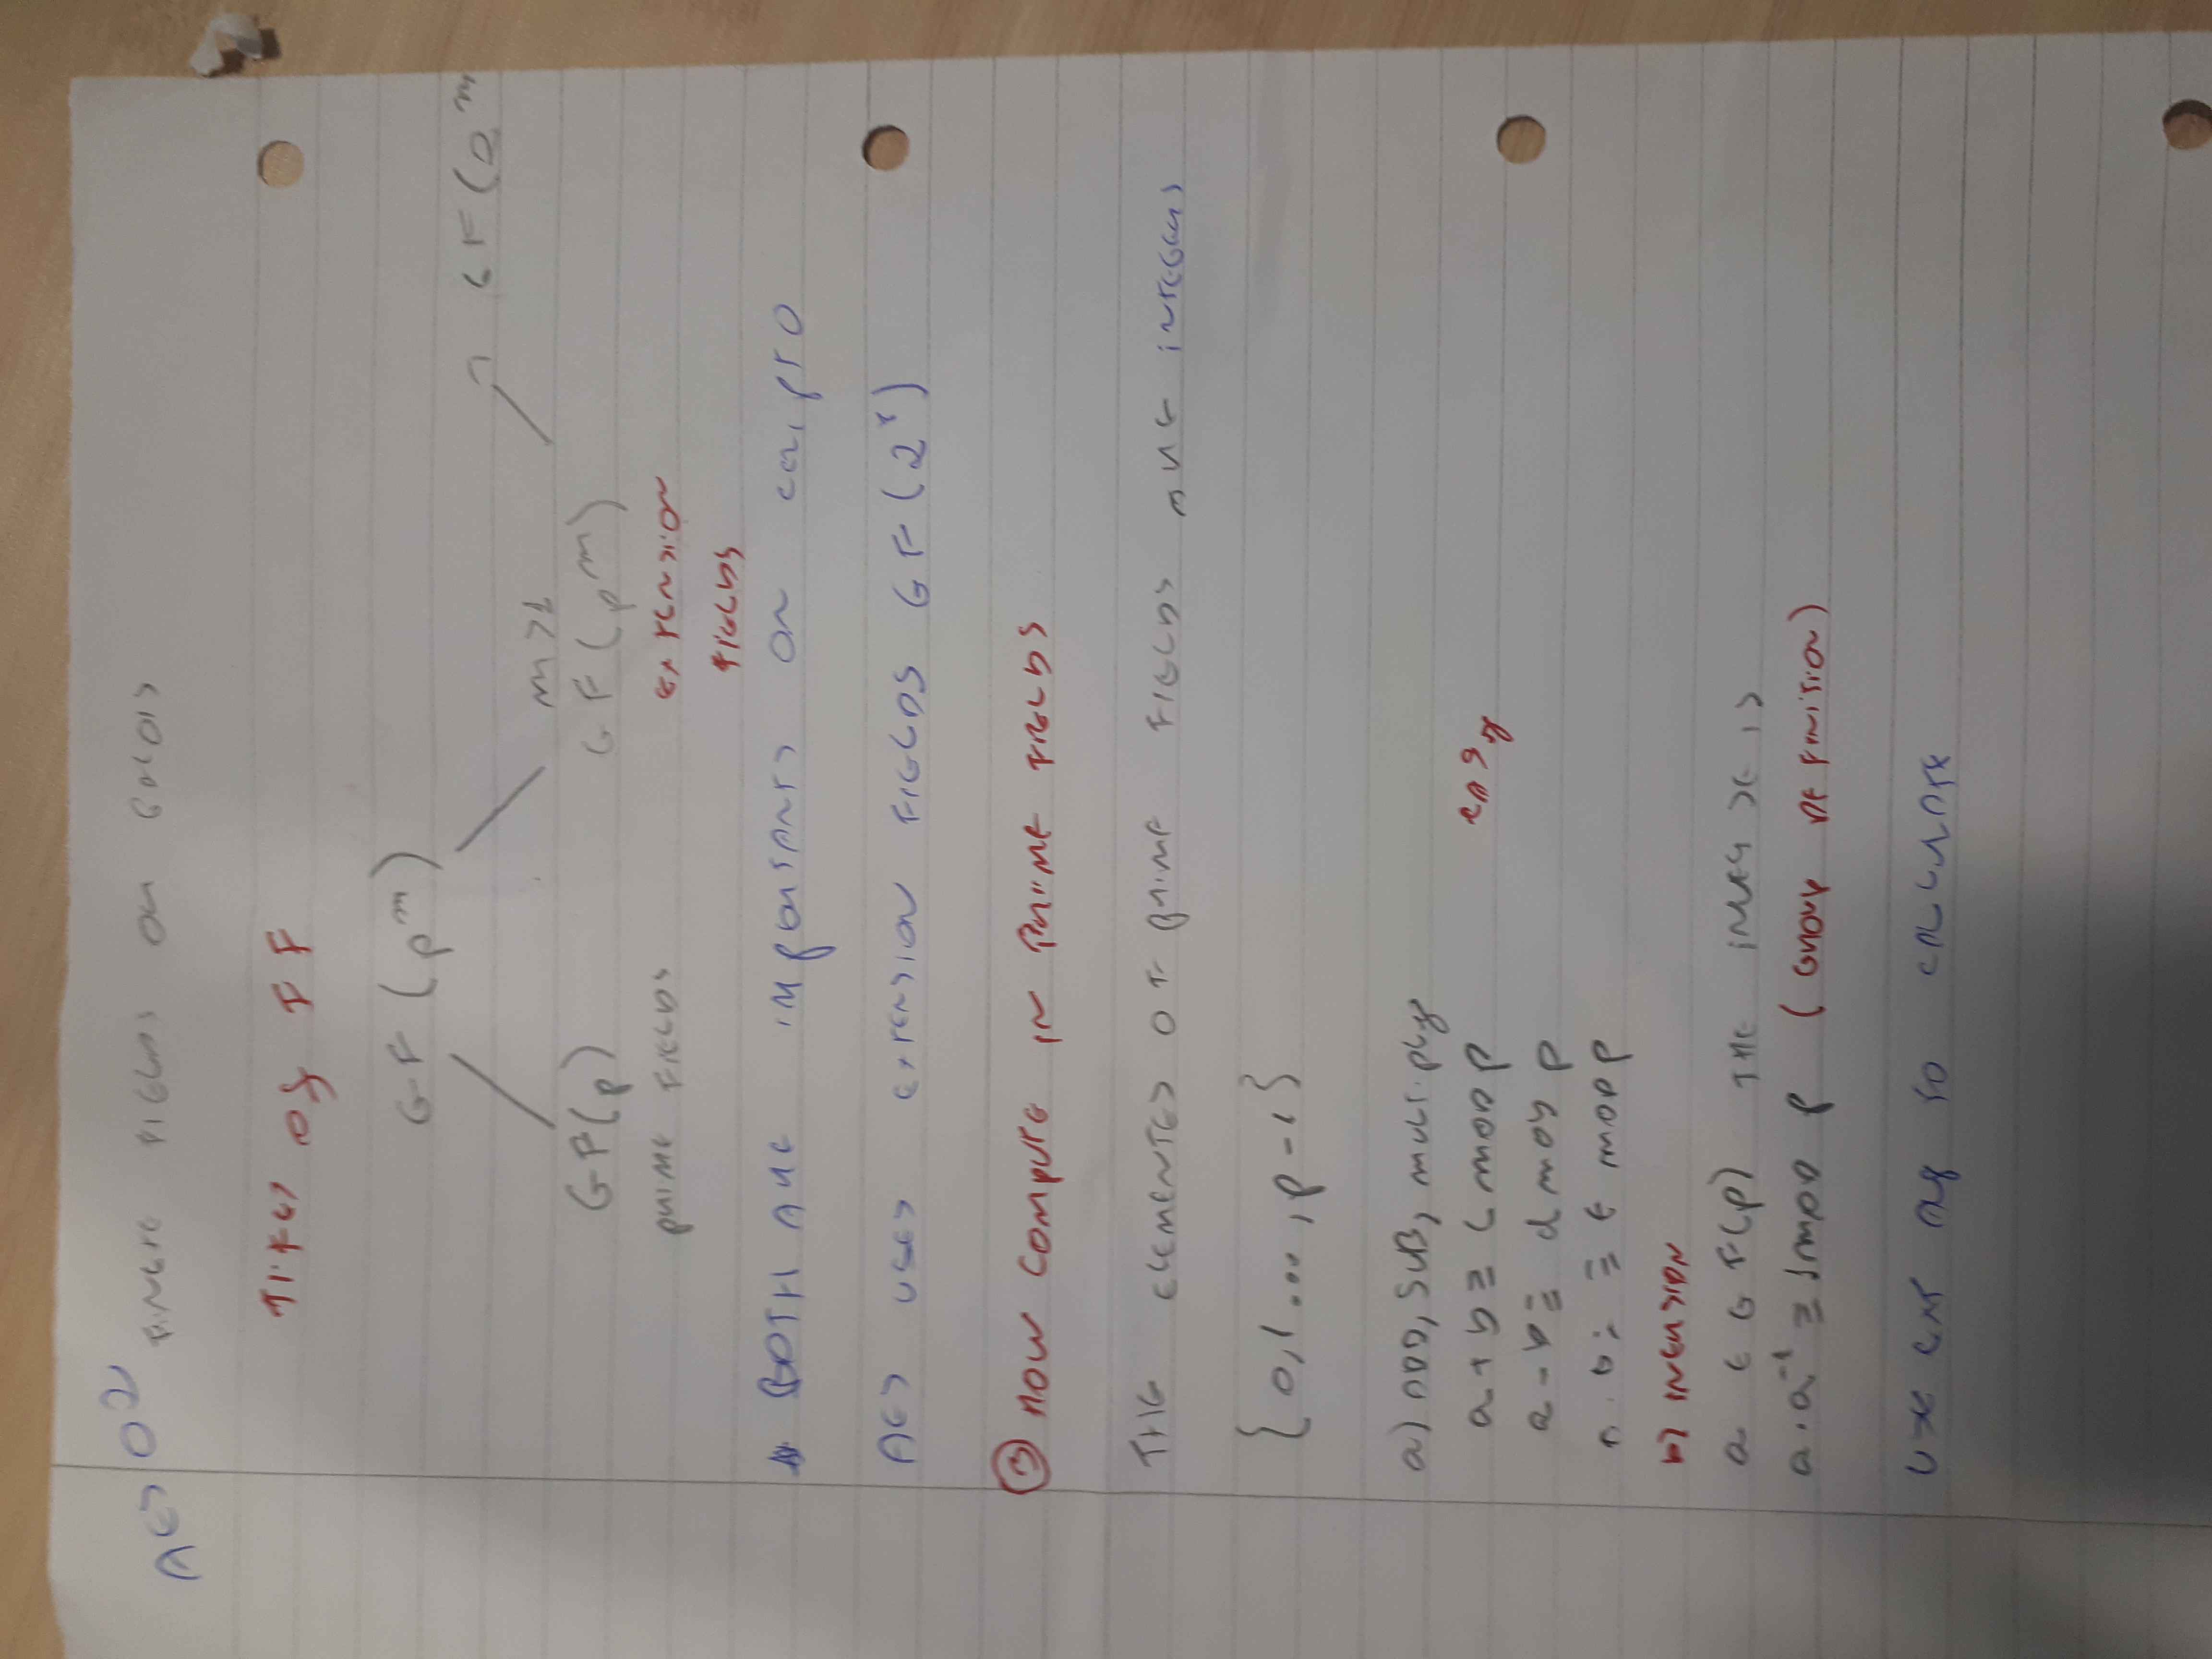 AES 02 FINITE FIELDS OR GALOIS
TYPES OF FF
GF (p^m)
GF (2^m
m > 1
GF(p) GF (p^m)
PRIME FIELDS EXTENSION
FIELDS
BOTH ARE IMPORTANTS ON CRIPTO
AES USES EXTENSION FIELDS GF (2^8)
③ HOW COMPUTE IN PRIME FIELDS
THE ELEMENTES OF PRIME FIELDS ARE INTEGERS
{0,1...., p-1}
a) ADD, SUB, MULTIPLY
a + b ≡ C MOD p EASY
a - b ≡ d MOD p
a . b ≡ E MOD p
b) INERSION
a ∈ GF(p) THE INVERSE IS
a . a^-1 ≡ 1 MOD p (GROUP DEFINITION)
USE EXT ALG TO CALCULATE